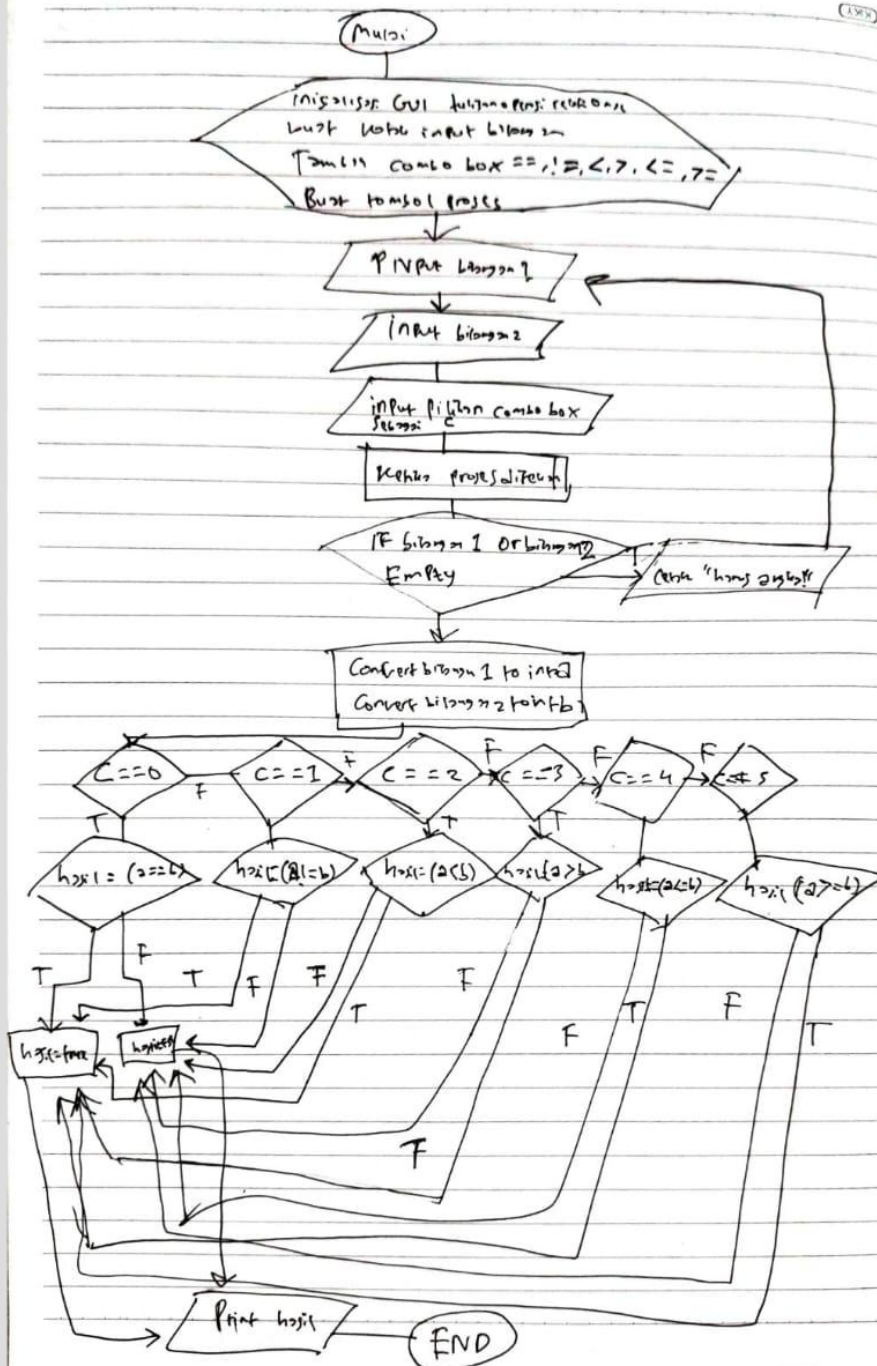 Mulai
inisialisasi GUI
buat kotak input bilangan
Tambah combo box ==, !=, <, >, <=, >=
Buat tombol proses
INPut bilangan 1
input bilangan 2
input pilihan combo box
sebagai C
Ketika proses ditekan
IF bilangan 1 Or bilangan 2
Empty
T
Cetak "harus angka!!"
Convert bilangan 1 to int a
Convert bilangan 2 to int b
C==0
F
C==1
F
C==2
F
C==3
F
C==4
F
C== 5
T
T
T
hasil = (a==b)
hasil=(a!=b)
hasil=(a<b)
hasil(a>b
hasil=(a<=b)
hasil (a>=b)
T
F
T
F
F
T
F
F
T
F
T
hasil=true
F
Print hasil
END